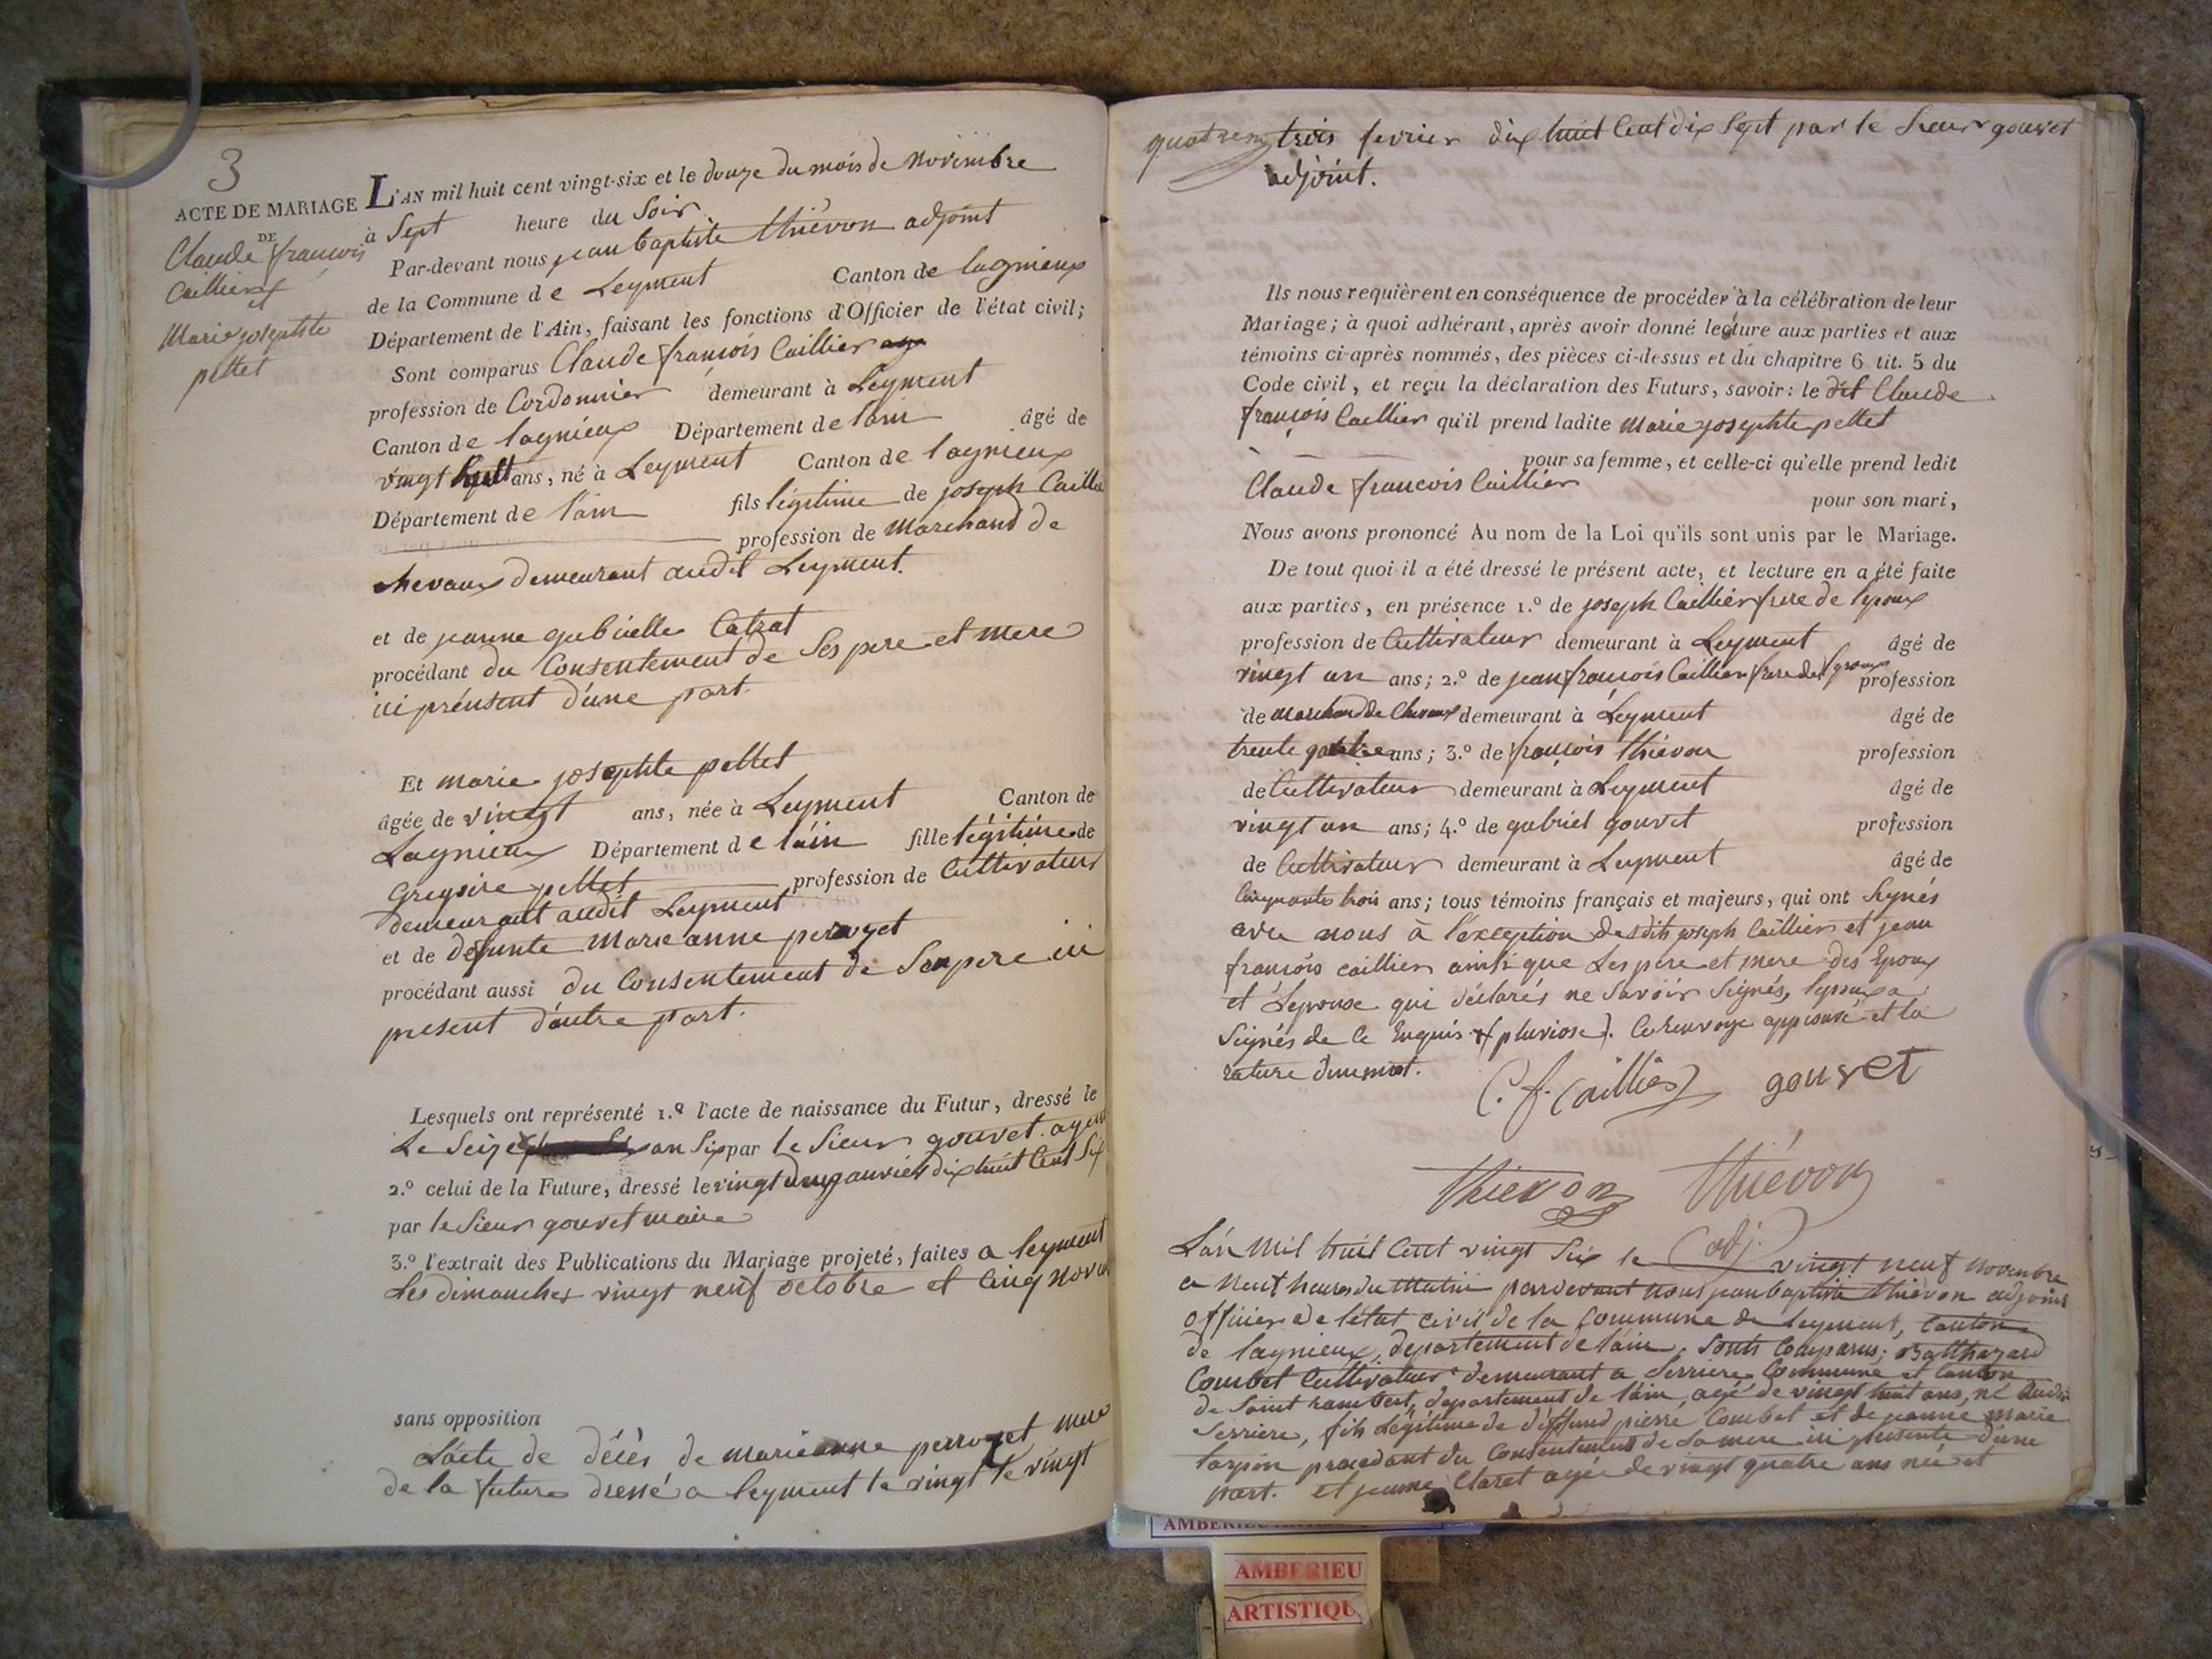 3
ACTE DE MARIAGE
DE
Claude françois
Caillier
et
Marie josephte
pettet
L'AN mil huit cent vingt-six et le douze du mois de novembre
à Sept heure du Soir
Par-devant nous jean baptiste thiévon adjoint
de la Commune de Leyment Canton de lagnieux
Département de l'Ain, faisant les fonctions d'Officier de l'état civil;
Sont comparus Claude françois Caillier
profession de Cordonnier demeurant à Leyment
Canton de lagnieux Département de lain âgé de
vingt huit ans, né à Leyment Canton de lagnieux
Département de l'ain fils légitime de joseph Caillier
profession de Marchand de
chevaux demeurant audit Leyment.
et de jeanne gabrielle Catrat
procédant du Consentement de Ses pere et mere
ici présent d'une part.
Et marie josephte pettet
âgée de vingt ans, née à Leyment Canton de
Lagnieux Département de láin fille légitime de
Gregoire pettet profession de Cultivateur
demeurant audit Leyment
et de defunte Marie anne
procédant aussi du Consentement de Son pere ici
present d'autre part.
Lesquels ont représenté 1.º l'acte de naissance du Futur, dressé le
Le Seize an Six par le Sieur gouvet agent
2.º celui de la Future, dressé le vingt deux janvier dix huit Cent Six
par le Sieur gouvet maire
3.º l'extrait des Publications du Mariage projeté, faites a leyment
Les dimanches vingt neuf octobre et Cinq nov
sans opposition
L'acte de décès de marie anne mere
de la future dressé a leyment le vingt le vingt
quatre trois fevrier dix huit Cent dix Sept par le Sieur gouvet
adjoint.
Ils nous requièrent en conséquence de procéder à la célébration de leur
Mariage; à quoi adhérant, après avoir donné lecture aux parties et aux
témoins ci-après nommés, des pièces ci-dessus et du chapitre 6 tit. 5 du
Code civil, et reçu la déclaration des Futurs, savoir: le dit Claude
françois Caillier qu'il prend ladite Marie josephte pettet
pour sa femme, et celle-ci qu'elle prend ledit
Claude francois Caillier
pour son mari,
Nous avons prononcé Au nom de la Loi qu'ils sont unis par le Mariage.
De tout quoi il a été dressé le présent acte, et lecture en a été faite
aux parties, en présence 1.º de joseph Caillier frere de lepoux
profession de Cultivateur demeurant à Leyment âgé de
vingt un ans; 2.º de jean françois Caillier frere de lepoux profession
de Marchand de Chevaux demeurant à Leyment âgé de
trente quatre ans; 3.º de françois thiévon profession
de Cultivateur demeurant à Leyment âgé de
vingt un ans; 4.º de gabriel gouvet profession
de Cultivateur demeurant à Leyment âgé de
Cinquante trois ans; tous témoins français et majeurs, qui ont Signés
avec nous à l'exception desdits joseph Caillier et jean
françois caillier ainsi que Les pere et mere des Epoux
et Lepouse qui déclarés ne Savoir Signés, lepoux a
Signés de Ce Enquis (pluviose). Ce renvoye approuvé et la
rature dun mot.
C. f. Caillier gouvet
thievon thiévon
adj.
L'an Mil huit Cent vingt Six le vingt neuf novembre
a neuf heures du Matin pardevant nous jean baptiste thiévon adjoint
officier de l'état civil de la Commune de Leyment, Canton
de lagnieux, departement de l'ain. Sont Comparus; Balthazard
Combet Cultivateur demeurant a Serriere Commune et Canton
de Saint rambert, departement de l'ain, agé de vingt huit ans, né audit
Serriere, fils Légitime de deffund pierre Combet et de jeanne marie
procedant du Consentement de Sa mere ici presente d'une
part. et jeanne Claret agée de vingt quatre ans née et
AMBERIEU
AMBERIEU
ARTISTIQU